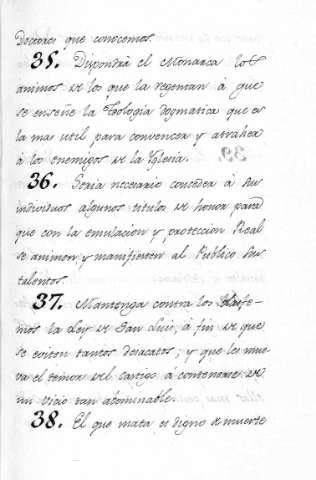 Doctores que conocemos.
35. Dispondrá el Monarca los
animos de los que la regentan á que
se enseñe la Teologia dogmatica que es
la mas util para convencer y atraher
á los enemigos de la Yglesia.
36. Seria necesario conceder á sus
individuos algunos titulos de honor para
que con la emulacion y proteccion Real
se animen y manifiesten al Publico sus
talentos.
37. Mantenga contra los Blasfe-
mos la Ley de San Luis, á fin de que
se eviten tantos desacatos; y que les mue-
va el temor del castigo á contenerse en
un vicio tan abominable.
38. El que mata es digno de muerte